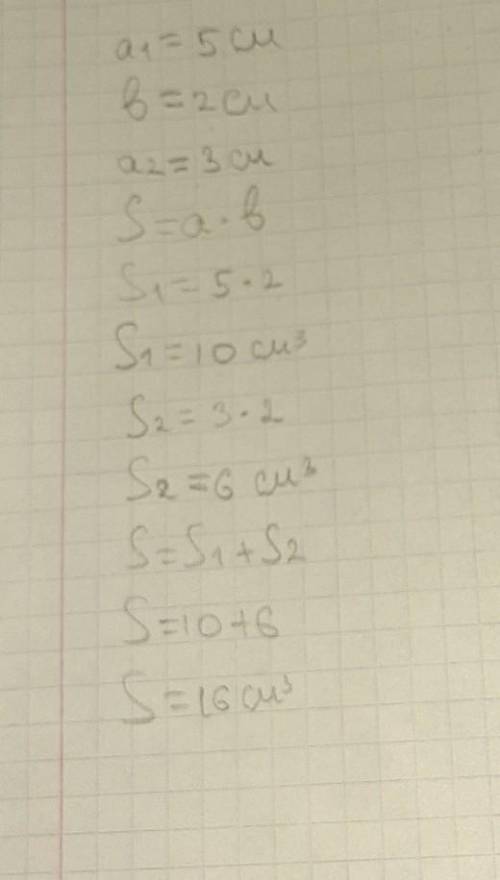 a₁ = 5 см
в = 2 см
a₂ = 3 см
S = a · в
S₁ = 5 · 2
S₁ = 10 см³
S₂ = 3 · 2
S₂ = 6 см³
S = S₁ + S₂
S = 10 + 6
S = 16 см³